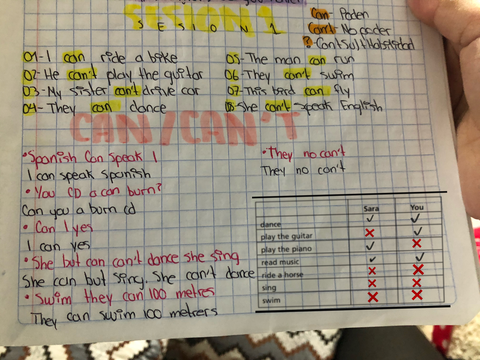 SESION 1
SESION 1
Can - Poder
Can't - No poder
? - Can + Suj + Habilidad
01- I can ride a bike
02- He can't play the guitar
03- My sister can't drive car
04- They can dance
05- The man can run
06- They can't swim
07- This bird can fly
She can't speak English
CAN/CAN'T
• Spanish Can Speak I
I can speak Spanish
• You CD a can burn?
Can you a burn cd
• Can I yes
I can yes
• She but can can't dance she sing
She can but sing. She can't dance
• Swim they can 100 metres
They can swim 100 metrers
• They no can't
They no can't
Sara You
dance ✓ ✓
play the guitar ✗ ✓
play the piano ✓ ✗
read music ✓ ✓
ride a horse ✗ ✗
sing ✗ ✗
swim ✗ ✗